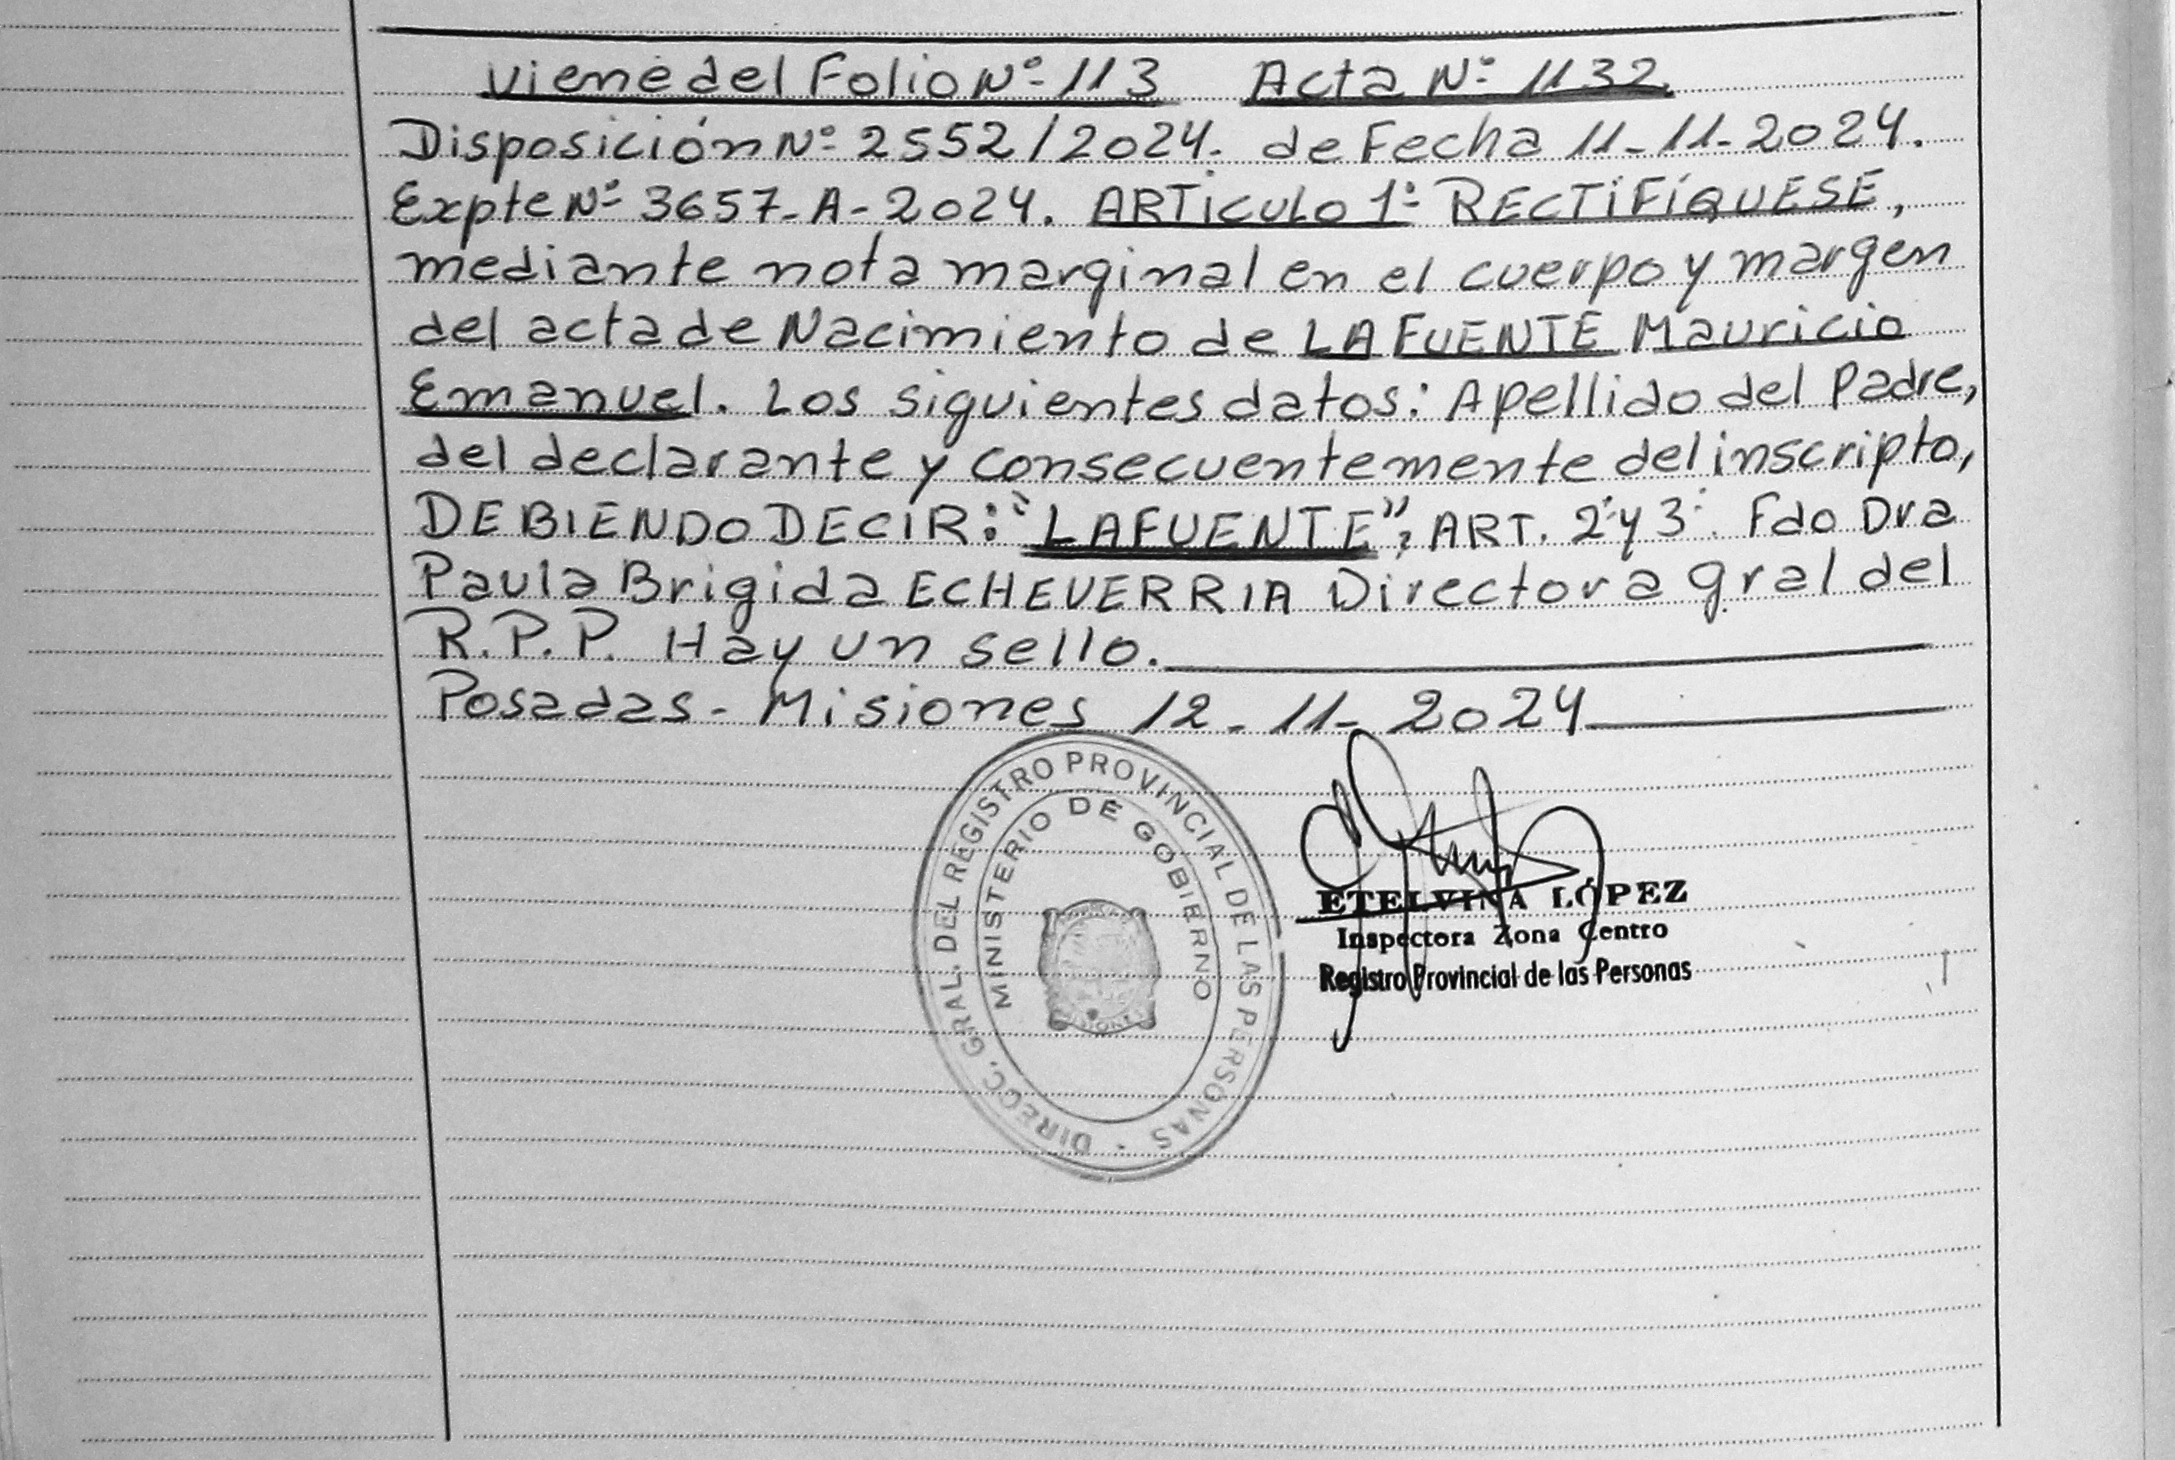 Viene del Folio Nº 113 Acta Nº 1132.
Disposición Nº 2552/2024. de Fecha 11-11-2024.
Expte Nº 3657-A-2024. ARTiCULO 1º RECTiFíQUESE,
mediante nota marginal en el cuerpo y margen
del acta de Nacimiento de LA FUENTE Mauricio
Emanuel. Los siguientes datos: Apellido del Padre,
del declarante y consecuentemente del inscripto,
DEBIENDO DECIR: "LAFUENTE", ART. 2º y 3º. Fdo Dra
Paula Brigida ECHEVERRIA Directora gral del
R.P.P. Hay un sello.
Posadas - Misiones 12-11-2024
DIRECC. GRAL. DEL REGISTRO PROVINCIAL DE LAS PERSONAS
MINISTERIO DE GOBIERNO
MISIONES
ETELVINA LÓPEZ
Inspectora Zona Centro
Registro Provincial de las Personas